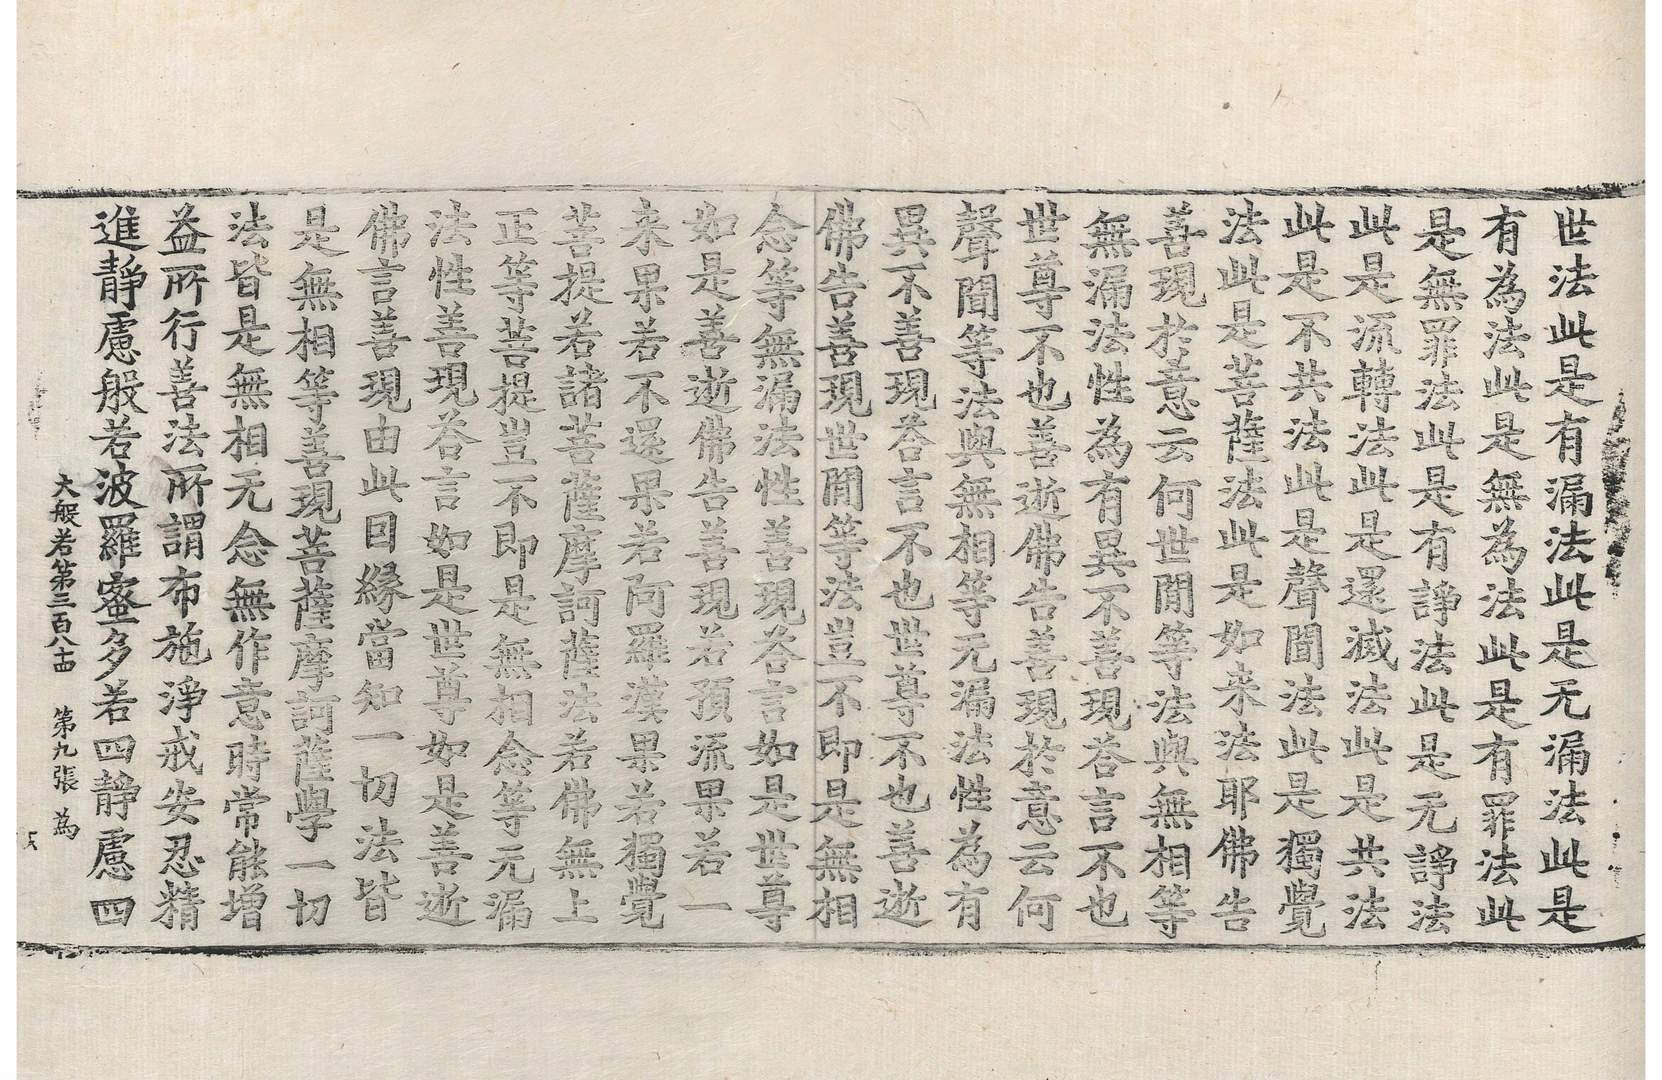 世法此是有漏法此是无漏法此是
有為法此是無為法此是有罪法此
是無罪法此是有諍法此是无諍法
此是流轉法此是還滅法此是共法
此是不共法此是聲聞法此是獨覺
法此是菩薩法此是如来法耶佛告
善現於意云何世間等法與無相等
無漏法性為有異不善現荅言不也
世尊不也善逝佛告善現於意云何
聲聞等法與無相等无漏法性為有
異不善現荅言不也世尊不也善逝
佛告善現世間等法豈不即是無相
念等無漏法性善現荅言如是世尊
如是善逝佛告善現若預流果若一
来果若不還果若阿羅漢果若獨覺
菩提若諸菩薩摩訶薩法若佛無上
正等菩提豈不即是無相念等无漏
法性善現荅言如是世尊如是善逝
佛言善現由此因緣當知一切法皆
是無相等善現菩薩摩訶薩學一切
法皆是無相无念無作意時常能增
益所行善法所謂布施淨戒安忍精
進靜慮般若波羅蜜多若四靜慮四
大般若第三百八十四 第九張 為